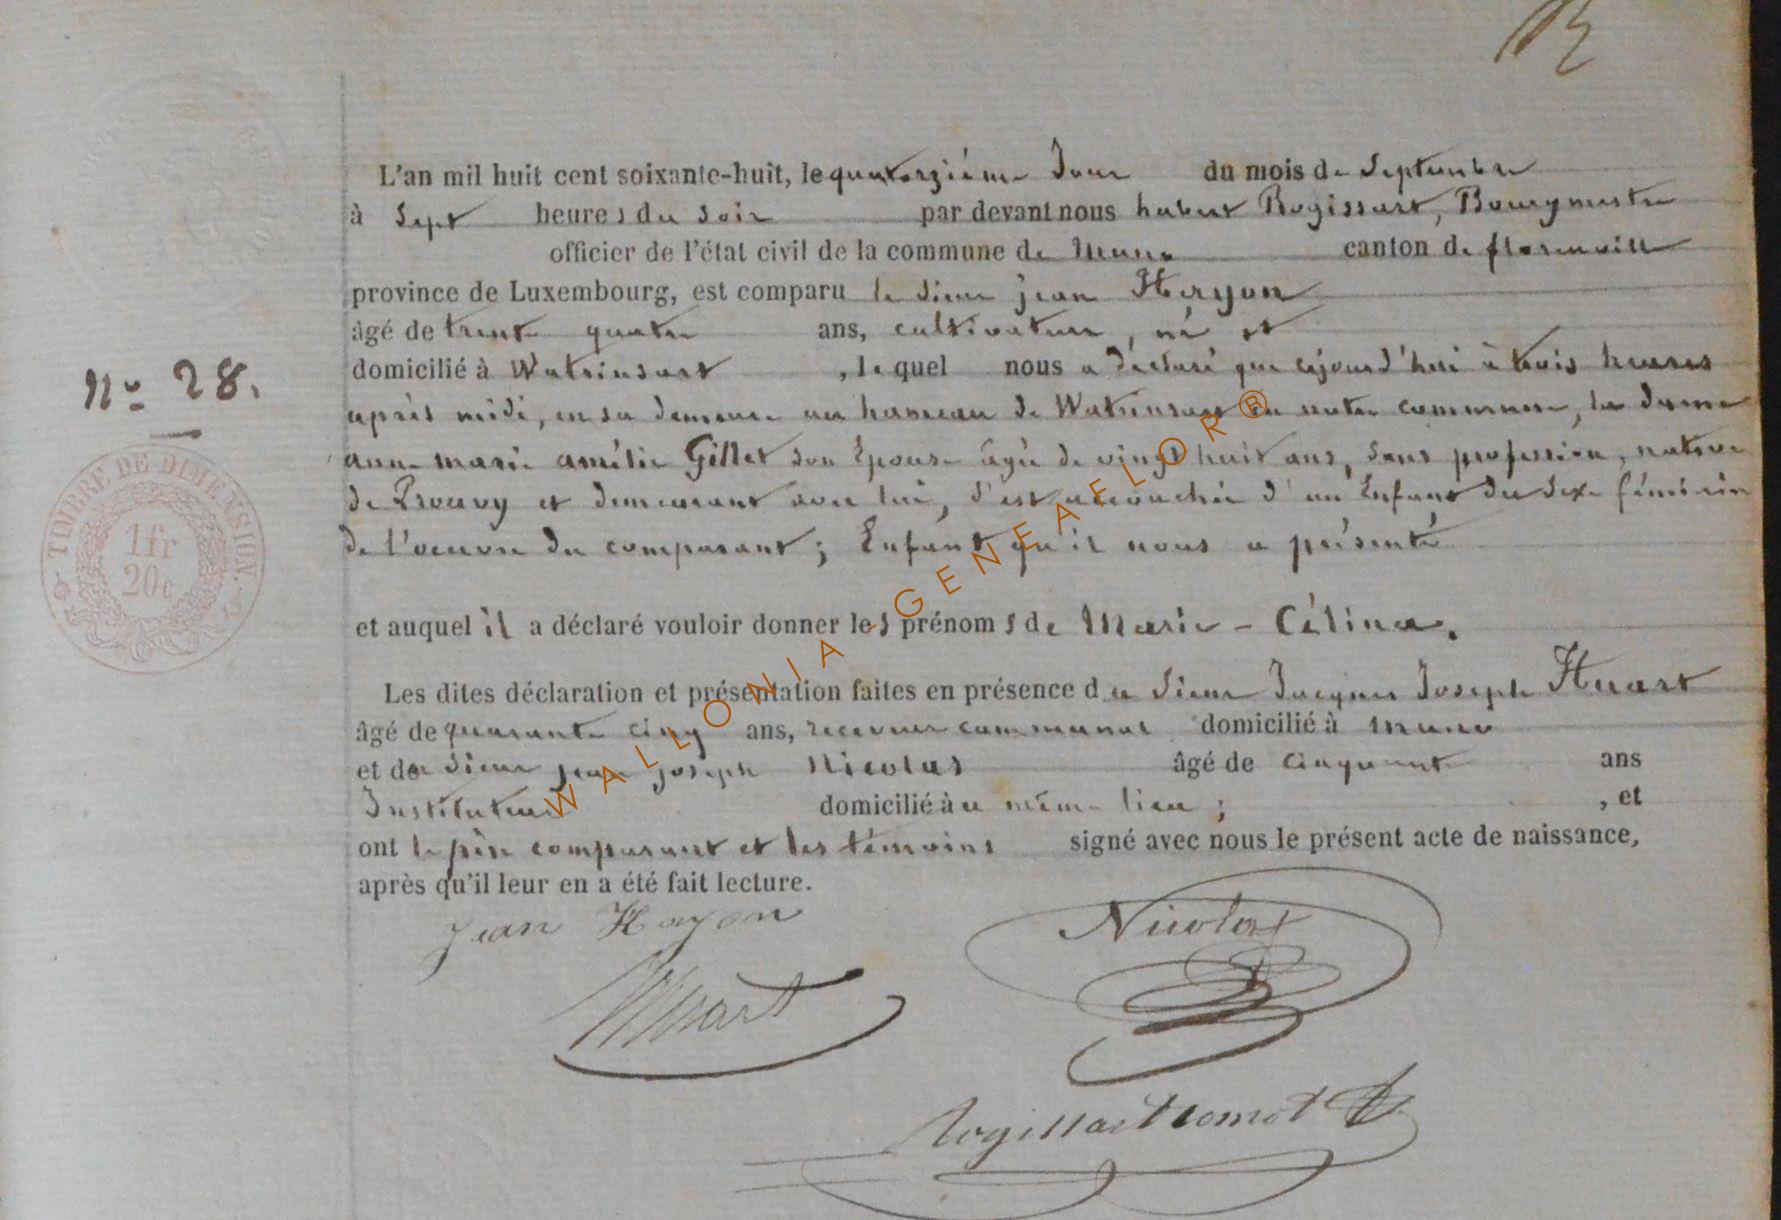 L'an mil huit cent soixante-huit, le quatorzième Jour du mois de Septembre
à Sept heures du soir par devant nous hubert Rogissart, Bourgmestre
officier de l'état civil de la commune de Muno canton de florenville
province de Luxembourg, est comparu le sieur jean Hayon
âgé de trente quatre ans, cultivateur, né et
domicilié à Watrinsart, lequel nous a déclaré que cejourd'hui à trois heures
N° 28.
après midi, en sa demeure au hameau de Watrinsart en notre commune, la dame
anne marie amélie Gillet son Epouse âgée de vingt huit ans, sans profession, native
de Prouvy et demeurant avec lui, s'est accouchée d'un Enfant du sexe féminin
de l'oeuvre du comparant; Enfant qu'il nous a présenté
TIMBRE DE DIMENSION.
1fr
20c
et auquel il a déclaré vouloir donner les prénoms de Marie - Célina.
Les dites déclaration et présentation faites en présence du Sieur Jacques Joseph Huart
âgé de quarante cinq ans, receveur communal domicilié à muno
et du sieur jean joseph Nicolas âgé de cinquante ans
Instituteur domicilié à même lieu; , et
ont le père comparant et les témoins signé avec nous le présent acte de naissance,
après qu'il leur en a été fait lecture.
Jean Hayon
Nicolas
Huart
WALLONIA - GENEAFLOR®